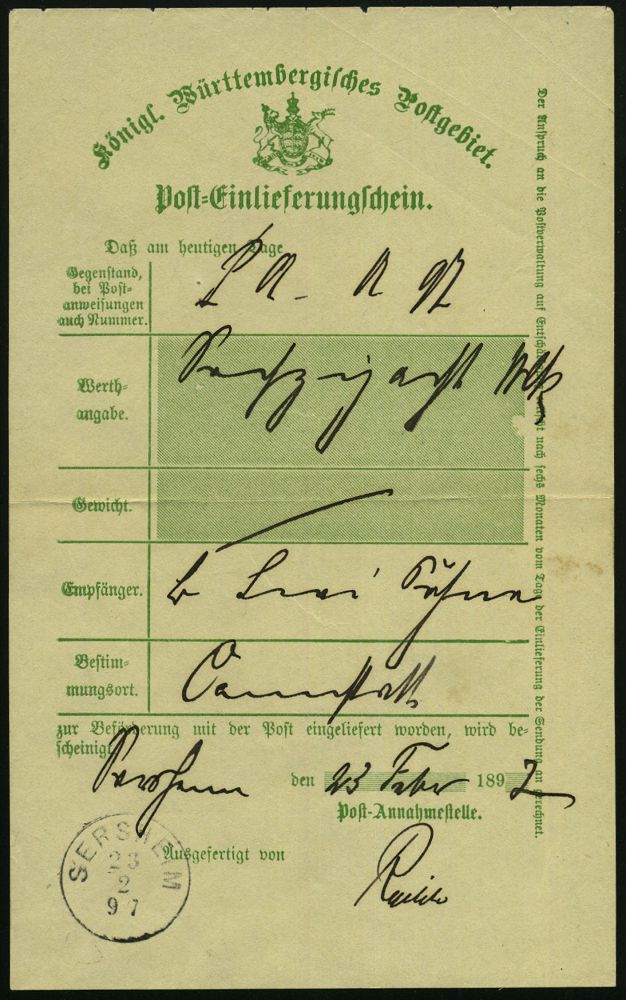 Königl. Württembergisches Postgebiet.
Post-Einlieferungschein.
Daß am heutigen Tage
Gegenstand,
bei Post-
anweisungen
auch Nummer.
Werth-
angabe.
Gewicht.
Empfänger.
Söhne
Bestim-
mungsort.
Cannstatt
zur Beförderung mit der Post eingeliefert worden, wird be-
scheinigt
Sersheim den 23 Febr 1897
Post-Annahmestelle.
Ausgefertigt von
SERSHEIM
23
2
97
Der Anspruch an die Postverwaltung auf nach sechs Monaten vom Tag der Einlieferung der Sendung an gerechnet.